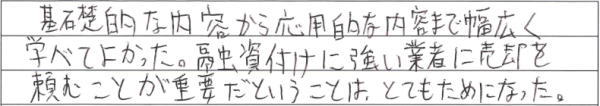 基礎的な内容から応用的な内容まで幅広く
学べてよかった。融資付けに強い業者に売却を
頼むことが重要だということは、とてもためになった。